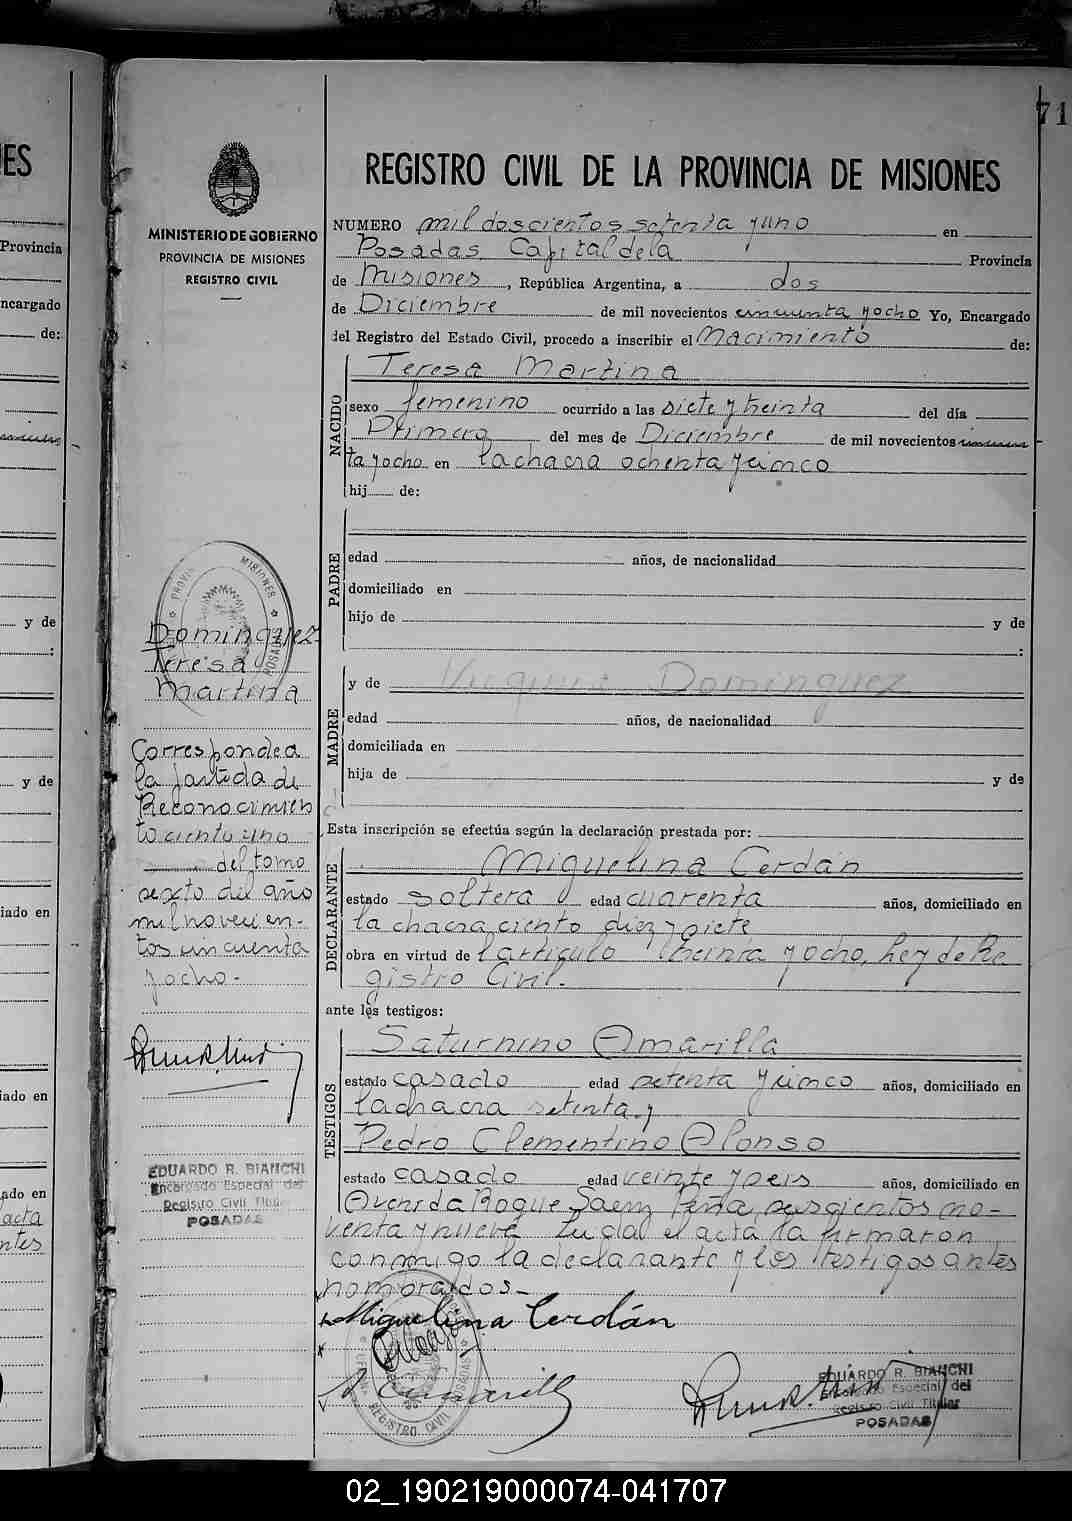 71
REGISTRO CIVIL DE LA PROVINCIA DE MISIONES
MINISTERIO DE GOBIERNO
PROVINCIA DE MISIONES
REGISTRO CIVIL
NUMERO mil doscientos setenta y uno en
Posadas Capital de la Provincia
de Misiones, República Argentina, a dos
de Diciembre de mil novecientos cincuenta y ocho Yo, Encargado
del Registro del Estado Civil, procedo a inscribir el Nacimiento de:
NACIDO
Teresa Martina
sexo femenino ocurrido a las siete y treinta del día
Primero del mes de Diciembre de mil novecientos cincuen
ta y ocho en la chacra ochenta y cinco
hij de:
PADRE
edad años, de nacionalidad
domiciliado en
hijo de y de
:
MADRE
y de Virginia Dominguez
edad años, de nacionalidad
domiciliada en
hija de y de
Esta inscripción se efectúa según la declaración prestada por:
DECLARANTE
Miguelina Cerdán
estado soltera edad cuarenta años, domiciliado en
la chacra ciento diez y siete
obra en virtud de l artículo treinta y ocho, Ley de Re
gistro Civil.
ante los testigos:
TESTIGOS
Saturnino Amarilla
estado casado edad setenta y cinco años, domiciliado en
la chacra setenta y
Pedro Clementino Alonso
estado casado edad veinte y seis años, domiciliado en
Avenida Roque Saenz Peña seiscientos no-
venta y nueve el acta la firmaron
conmigo la declarante y los testigos antes
nombrados.-
Miguelina Cerdán
EDUARDO R. BIANCHI
Encargado Especial del
Registro Civil Titular
POSADAS
REGISTRO CIVIL
POSADAS
MISIONES
POSADAS
Dominguez
Teresa
Martina
Corresponde a
la partida de
Reconocimien
to ciento uno
del tomo
sexto del año
mil novecien-
tos cincuenta
y ocho.-
EDUARDO R. BIANCHI
Encargado Especial del
Registro Civil Titular
POSADAS
ES
Provincia
ncargado
de:
y de
:
y de
iado en
iado en
ado en
acta
ntes
02_190219000074-041707